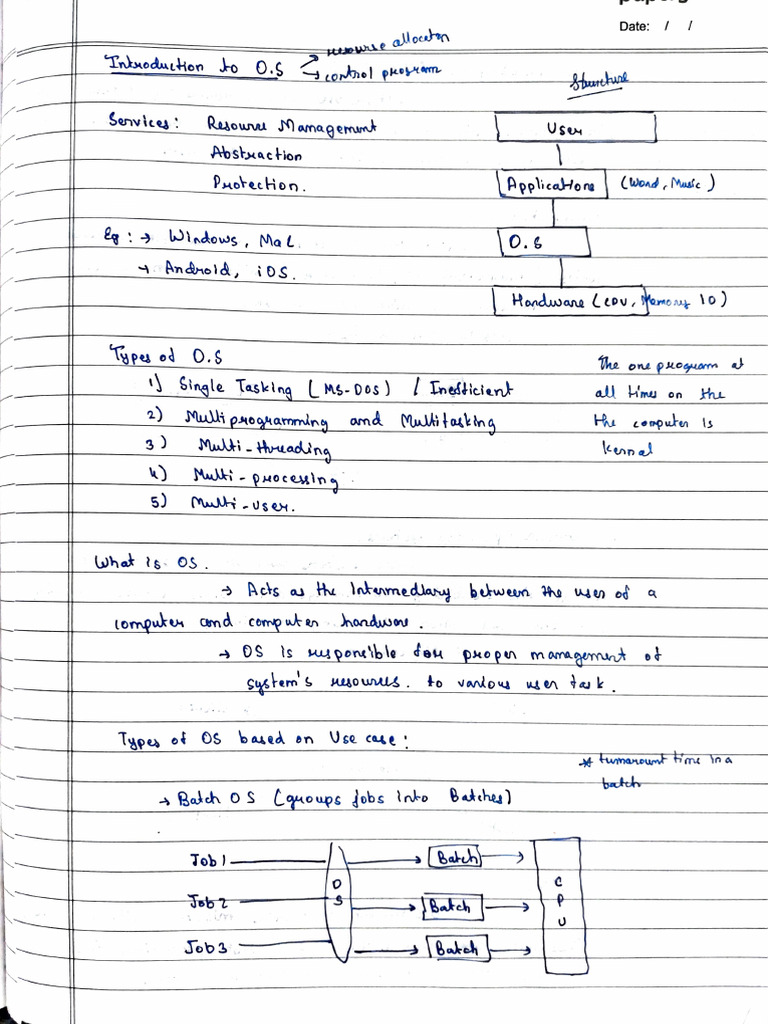 Date: / /
Introduction to O.S → resourse allocaton
→ control program
Structure
Services: Resource Management
User
Abstraction
Protection.
Applications (Word, Music)
Eg: → Windows, Mac
O.S
→ Android, iOS.
Hardware (CPU, Memory IO)
Types of O.S
1) Single Tasking (MS-DOS) / Inefficient
2) Multiprogramming and Multitasking
3) Multi-threading
4) Multi-processing
5) Multi-user.
The one program at
all times on the
the computer is
kernal
What is OS.
→ Acts as the Intermediary between the user of a
computer and computer hardware.
→ OS is responsible for proper management of
system's resources. to various user task.
Types of OS based on Use case:
* turnaround time in a
batch
→ Batch OS (groups jobs into Batches)
Job1 Batch
Job2 OS Batch CPU
Job3 Batch